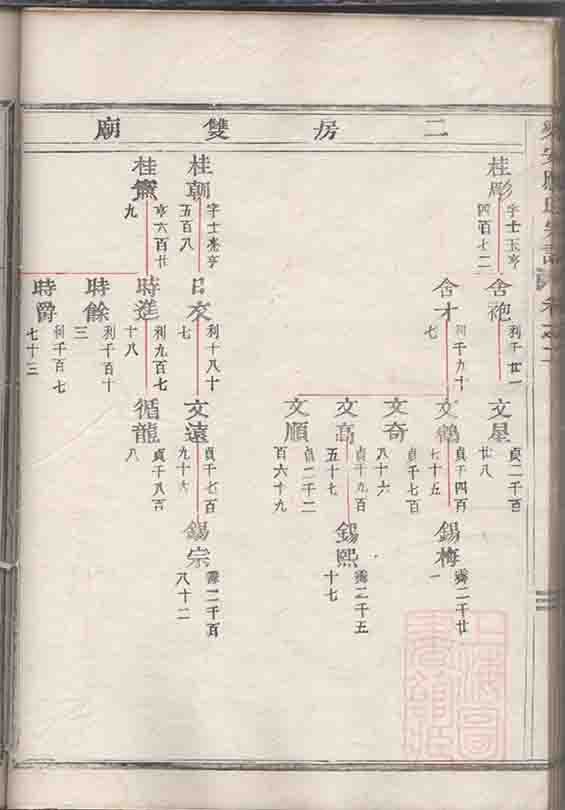 二房雙廟
桂彫
字士玉亨
四百七二
桂朝
字士堯亨
五百八
桂
亨六百廿
九
舍袍
利千廿一
舍才
利千九十
七
日交
利十八十
七
時進
利九百七
十八
時餘
利千百十
三
時爵
利千百七
七十三
文星
貞二千百
廿八
文鶴
貞千四百
七十五
文奇
貞千七百
八十六
文高
貞千九百
五十七
文順
貞二千二
百六十九
文遠
貞千七百
九十六
循龍
貞千八百
八
錫梅
二千廿
一
錫熙
二千五
十七
錫宗
二千百
八十二
上海圖書館